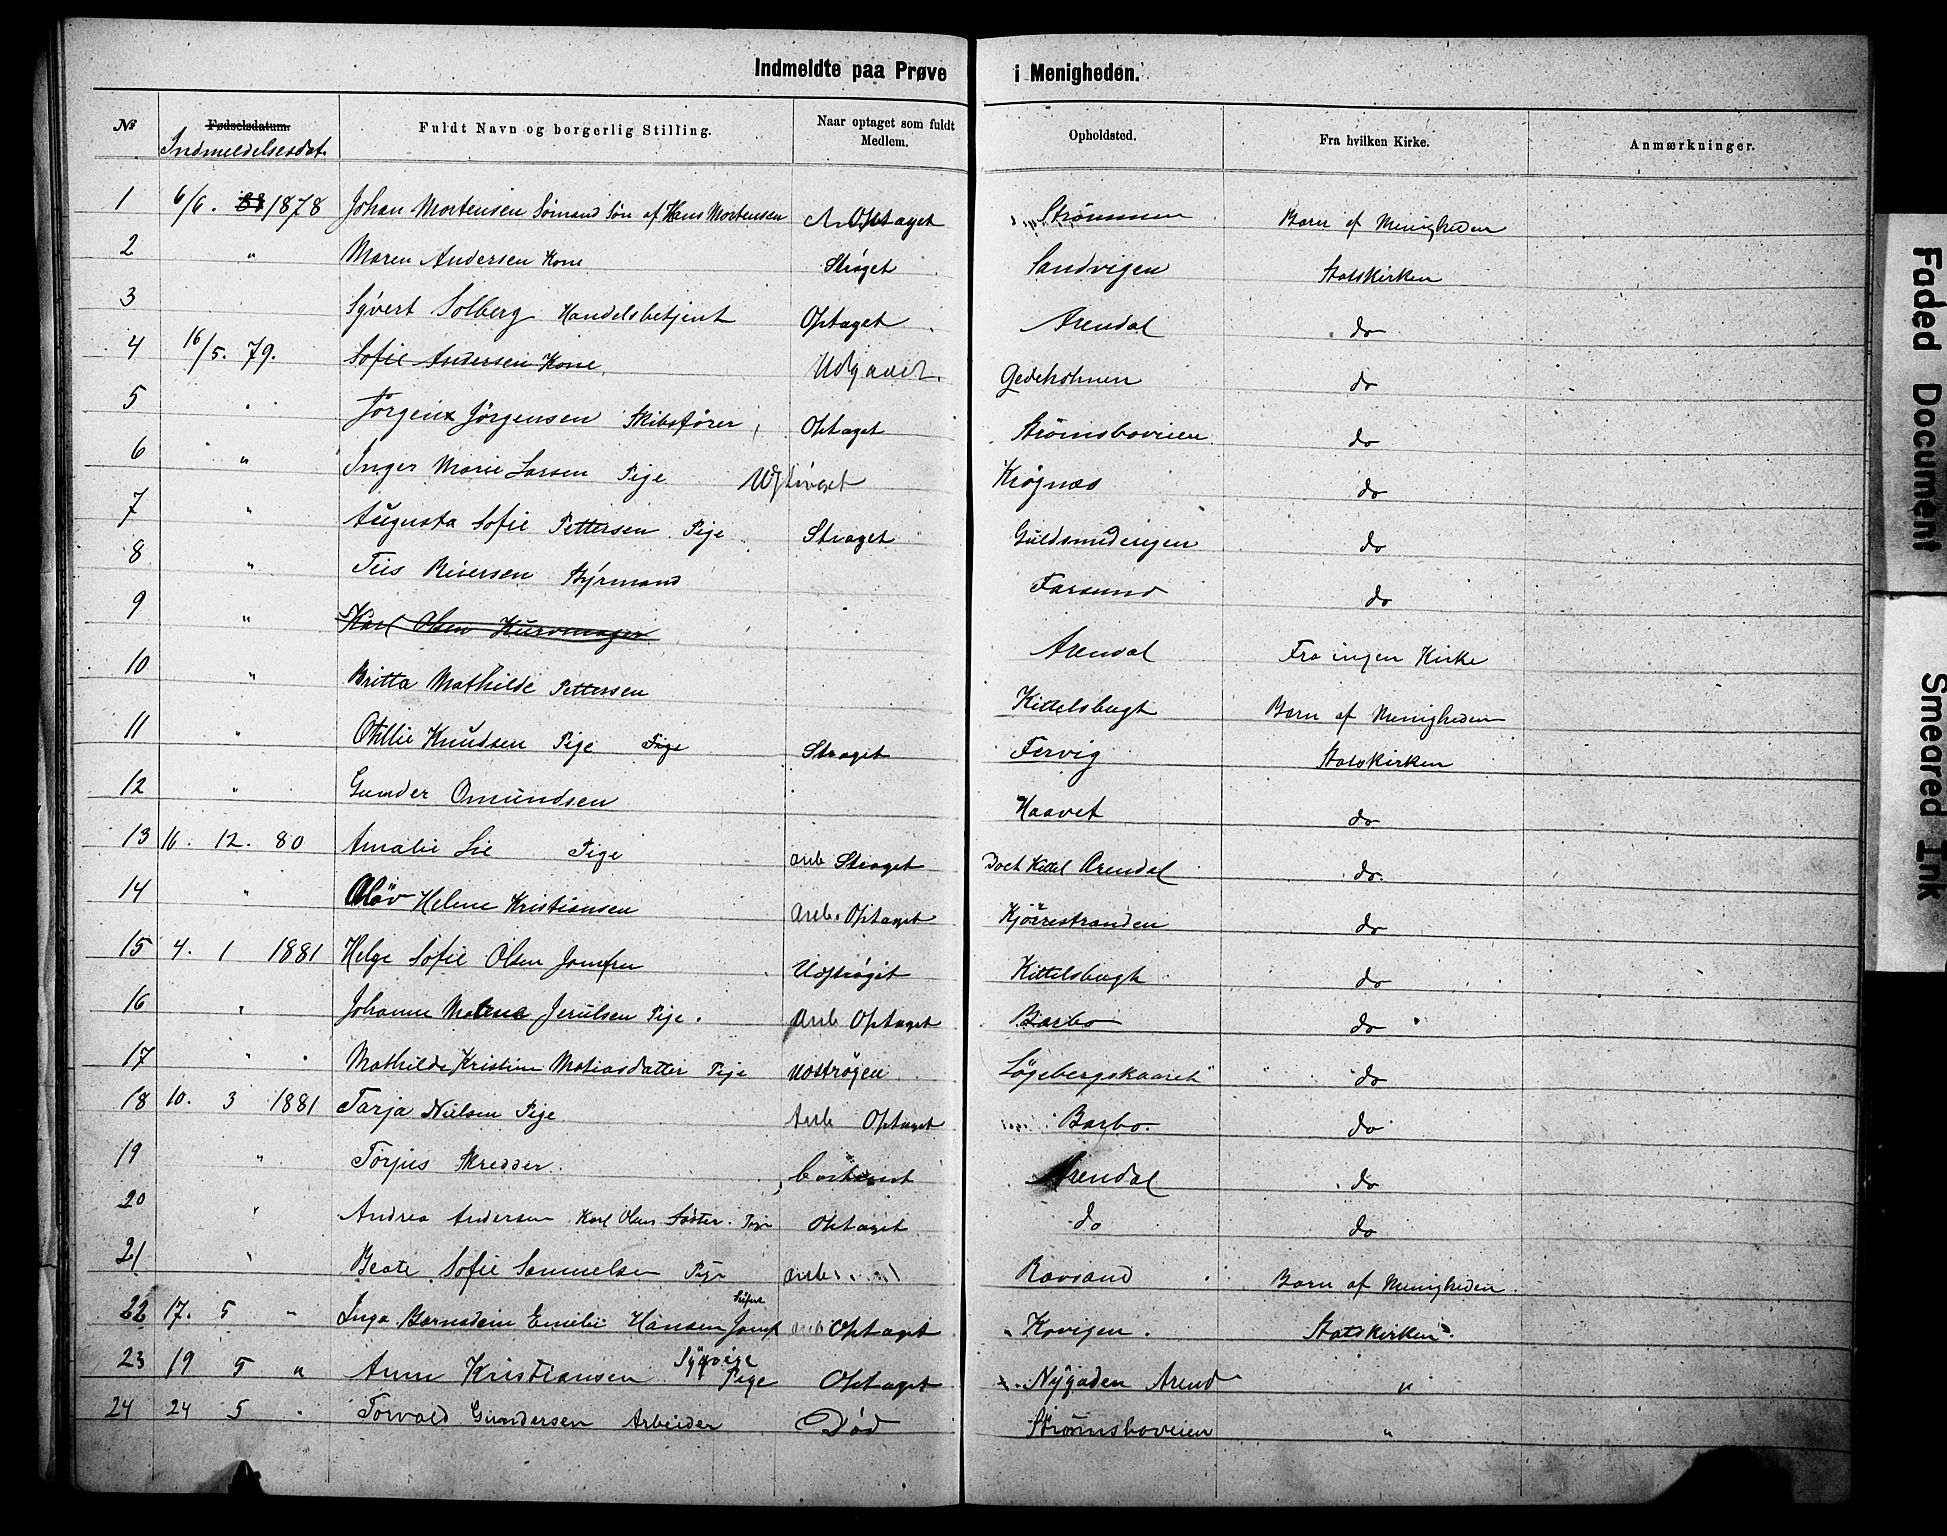 Indmeldte paa Prøve i Menigheden.
№ Fødselsdatum. Indmeldelsesdat. Fuldt Navn og borgerlig Stilling. Naar optaget som fuldt Medlem. Opholdsted. Fra hvilken Kirke. Anmærkninger.
1 6/6. 1878 Johan Mortensen Sømand Søn af Hans Mortensen Optaget Strømmen Barn af Menigheden
2 " Maren Andersen Kone Strøget Sandvigen Statskirken
3 Syvert Solberg Handelsbetjent Optaget Arendal do
4 16/5. 79. Sofie Andersen Kone Udgaaet. Gedeholmen do
5 " Jørgen Jørgensen Skibsfører Optaget Strømsboveien do
6 " Inger Marie Larsen Pige Krøgnæs do
7 " Augusta Sofie Pettersen Pige Strøget do
8 " Tiis Reiersen Styrmand Farsund do
9 " Karl Olsen Kurvmager Arendal Fra ingen Kirke
10 " Britta Mathilde Pettersen Kittelsbugt Barn af Menigheden
11 " Otillie Knudsen Pige Pige Strøget Fervig Statskirken
12 " Gunder Omundsen Haavet do
13 16. 12. 80 Amalie Lie Pige Strøget Kittel Arendal do.
14 " Helene Kristiansen Optaget Kjørrestranden do
15 4. 1 1881 Helge Sofie Olsen Jomfru Udstrøget Kittelsbugt do
16 " Johanne Malene Pige. Optaget Barbo do
17 " " Mathilde Kristine Matiasdatter Pige Udstrøgen do
18 10. 3 1881 Tarja Nielsen Pige Optaget Barbo. do
19 " Torjus Skredder. Bortreist Arendal do
20 " Andrea Andersen Karl Olsens Søster. Pige Optaget do do
21 " Beate Sofie Samuelsen Pige Ravsand Barn af Menigheden.
22 17. 5 " Inga Emilie Hansen Jomf Optaget Kovigen. Statskirken.
23 19 5 " Anne Kristiansen Sypige Pige Optaget Nygaden Arend "
24 24 5 " Torvald Gundersen Arbeider Død Strømsboveien "
Faded Document
Smeared Ink